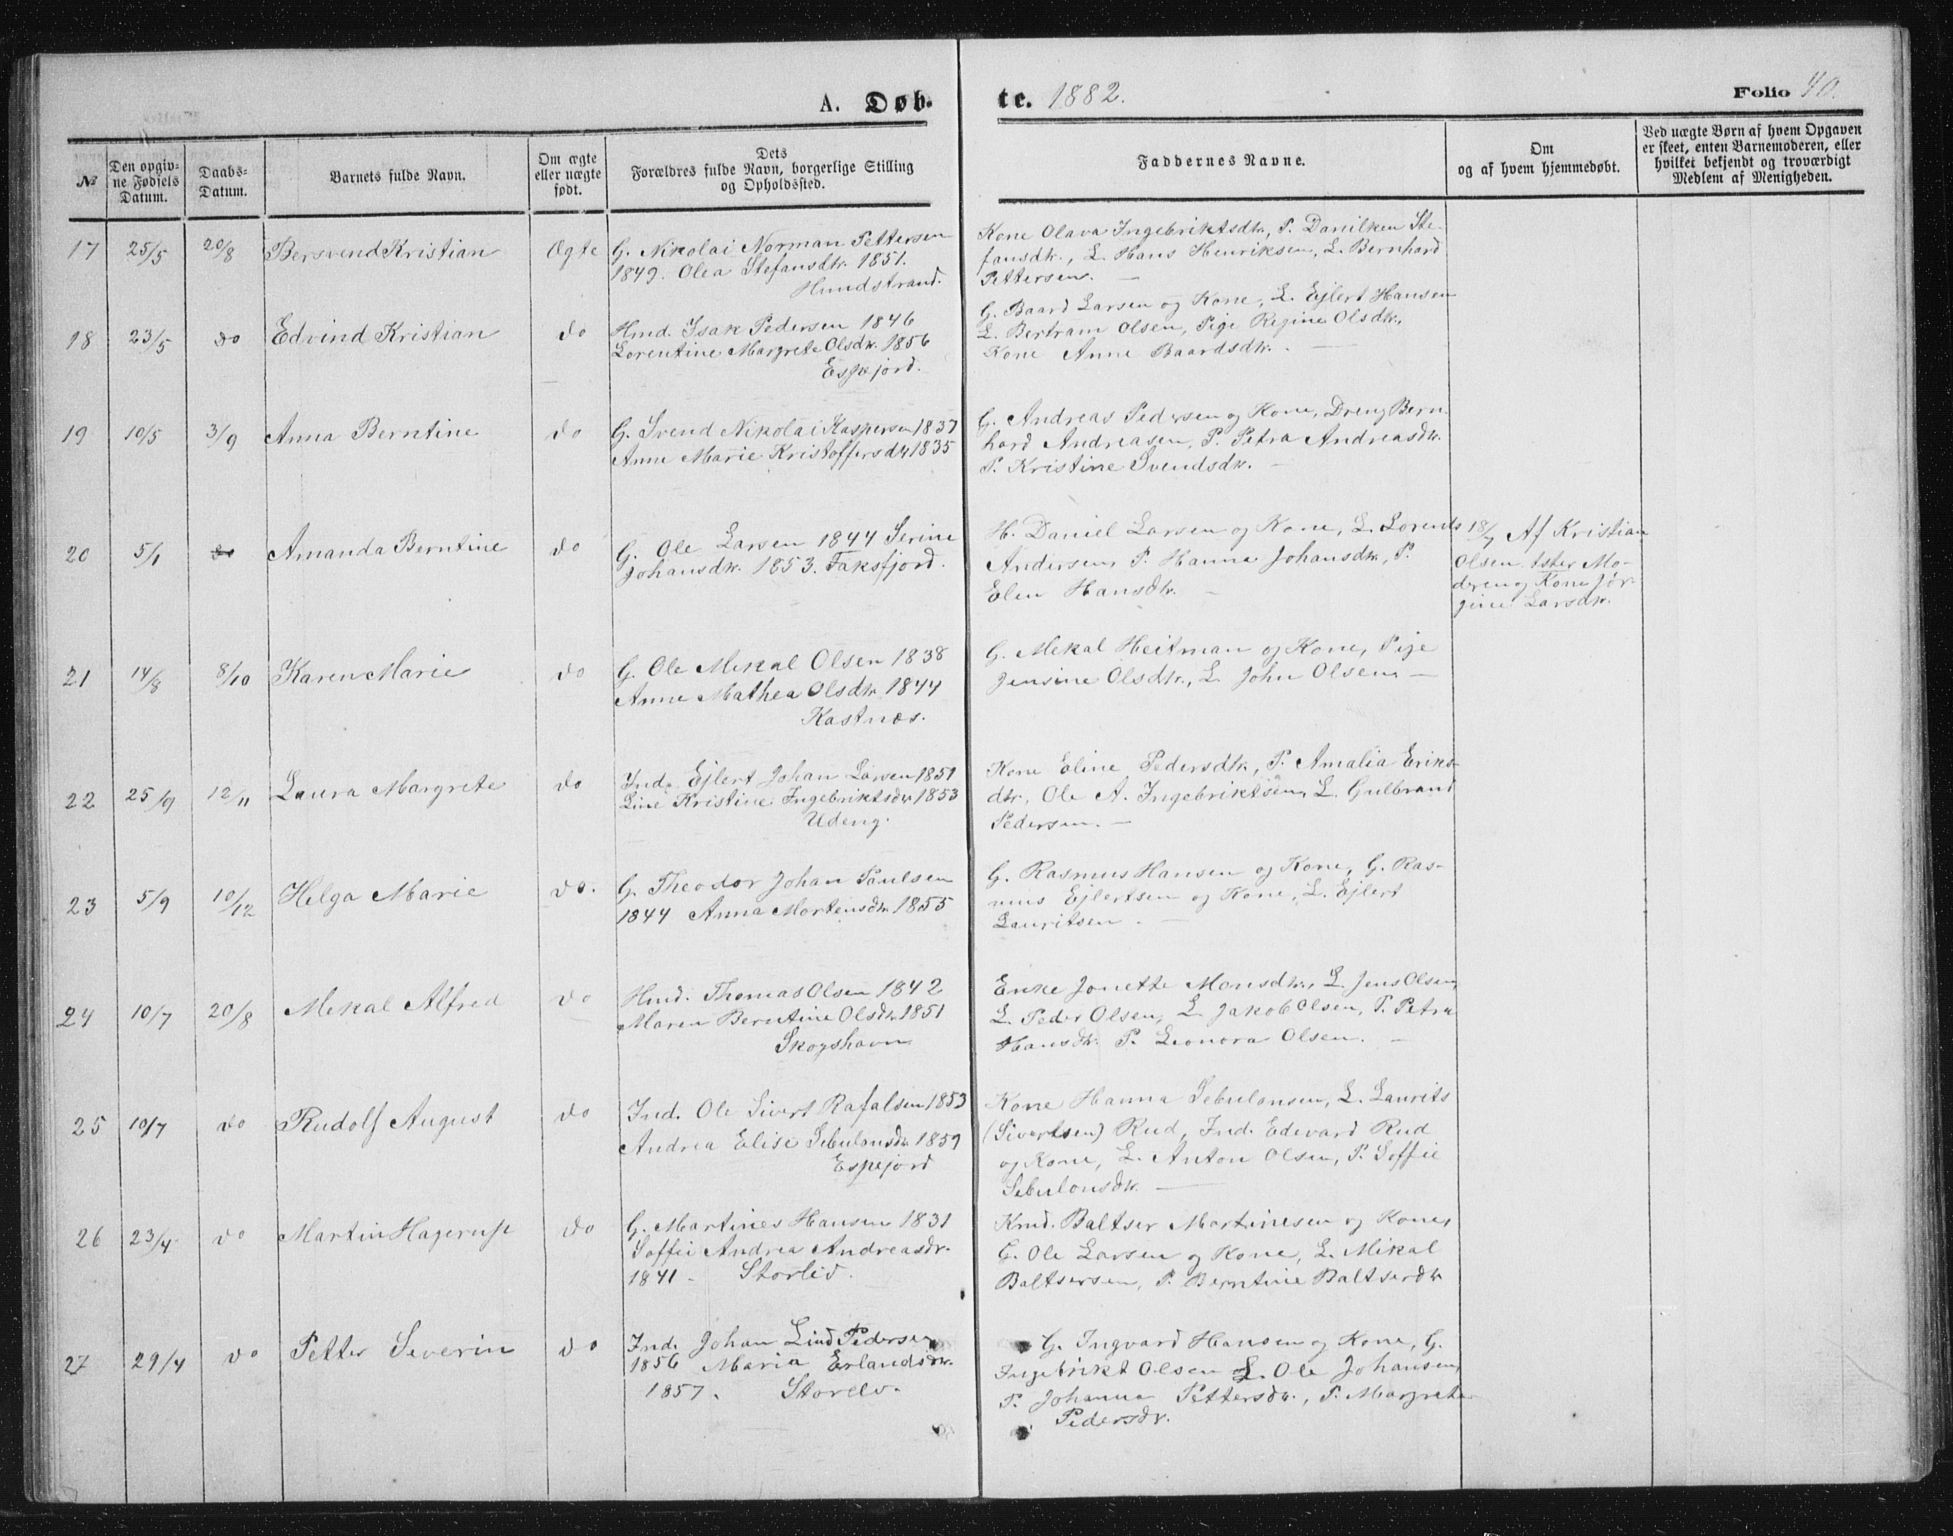 A. Døb- te. 1882. Folio 40.
№
Den opgiv-
ne Fødsels
Datum.
Daabs-
Datum.
Barnets fulde Navn.
Om ægte
eller uægte
født.
Dets
Forældres fulde Navn, borgerlige Stilling
og Opholdssted.
Faddernes Navne.
Om
og af hvem hjemmedøbt.
Ved uægte Børn af hvem Opgaven
er skeet, enten Barnemoderen, eller
hvilket bekjendt og troværdigt
Medlem af Menigheden.
17 25/5 20/8 Bersvend Kristian Ægte
G. Nikolai Norman Pettersen
1849. Olea Stefansdtr. 1851.
Hundstrand.
Kone Olava Ingebriktsdtr, P. Danilken Ste-
fansdtr., L. Hans Henriksen, L. Bernhard
Pettersen. —
18 23/5 do Edvind Kristian do
Hmd. Isak Pedersen 1846
Lorentine Margrete Olsdtr. 1856
Espejord.
G. Baard Larsen og Kone, L. Ejlert Hansen
L. Bertram Olsen, Pige Regine Olsdtr.
Kone Anne Baardsdtr. —
19 10/5 3/9 Anna Berntine do
G. Svend Nikolai Kaspersen 1837
Anne Marie Kristoffersdtr 1835
G. Andreas Pedersen og Kone, Dreng Bern-
hard Andreasen, P. Petra Andreasdtr.
P. Kristine Svendsdtr. —
20 5/1 do Amanda Berntine do
G. Ole Larsen 1844 Serine
Johansdtr. 1853. Faksfjord.
H. Daniel Larsen og Kone, L. Lorents
Andersen, P. Hanna Johansdtr, P.
Elen Hansdtr. —
18/7 Af Kristian
Olsen tster Mo-
dren og Kone Jør-
gine Larsdtr.
21 14/8 8/10 Karen Marie do
G. Ole Mekal Olsen 1838
Anne Mathea Olsdtr. 1844
Kastnæs.
G. Mekal Heitman og Kone, Pige
Jensine Olsdtr., L. John Olsen. —
22 25/9 12/11 Laura Margrete do
Ind. Ejlert Johan Larsen 1851
Line Kristine Ingebriktsdtr 1853
Udeng.
Kone Eline Pedersdtr, P. Amalia Eriks-
dtr, Ole A. Ingebriktsen, L. Gulbrand
Pedersen. —
23 5/9 10/12 Helga Marie do.
G. Theodor Johan Paulsen
1844 Anna Mortensdtr. 1855
G. Rasmus Hansen og Kone, G. Ras-
mus Ejlertsen og Kone, L. Ejlert
Lauritsen. —
24 10/7 20/8 Mekal Alfred do
Hmd. Thomas Olsen 1842
Maren Berntine Olsdtr 1851
Skogshavn
Enke Jonette Monsdtr., L. Jens Olsen,
L. Peder Olsen, L. Jakob Olsen, P. Petra
Hansdtr. P. Leonora Olsen. —
25 10/7 do Rudolf August do
Ind. Ole Sivert Rafalsen 1853
Andrea Elise Sebulonsdtr 1859
Espejord
Kone Hanna Sebulonsen, L. Laurits
(Sivertsen) Rud, Ind. Edevard Rud
og Kone, L. Anton Olsen, P. Soffie
Sebulonsdtr. —
26 23/4 do Martin Hagerup do
G. Martines Hansen 1831
Soffie Andrea Andreasdtr.
1841 - Storlid.
Kmd. Baltser Martinesen og Kone,
G. Ole Larsen og Kone, L. Mikal
Baltsersen, P. Berntine Baltserdtr
27 29/4 do Petter Severin do
Ind. Johan Lind Pedersen
1856 Maria Erlandsdtr.
1857. Storelv.
G. Ingvard Hansen og Kone, G.
Ingebrikt Olsen L. Ole Johansen,
P. Johanna Pettersdtr., P. Margrete
Pedersdtr.